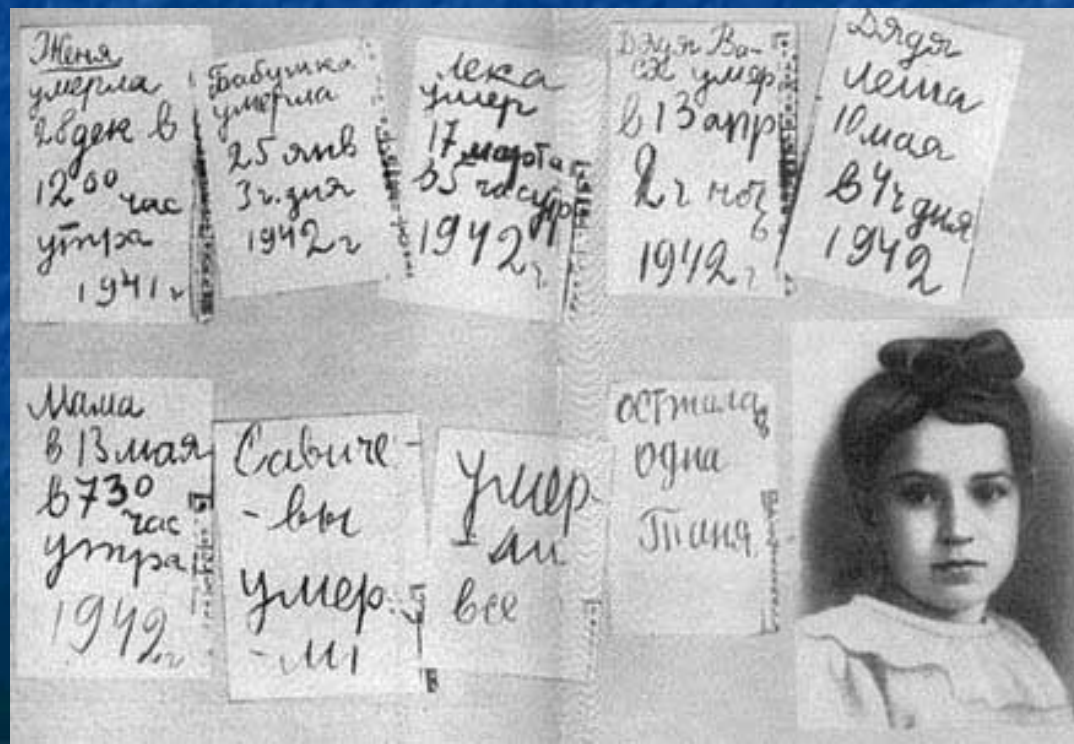 Женя
умерла
28 дек в
12 00 час
утра
1941 г
Бабушка
умерла
25 янв
3 ч. дня
1942 г
Лека
умер
17 марта
в 5 час утр
1942 г.
Дядя Ва-
ся умер
в 13 апр
2 ч ноч
ь
1942 г
Дядя
Леша
10 мая
в 4 ч дня
1942
Мама
в 13 мая
в 7 30
час
утра
1942 г
Савиче-
-вы
умер.
-ли
Умер
-ли
все
осталась
одна
Таня.